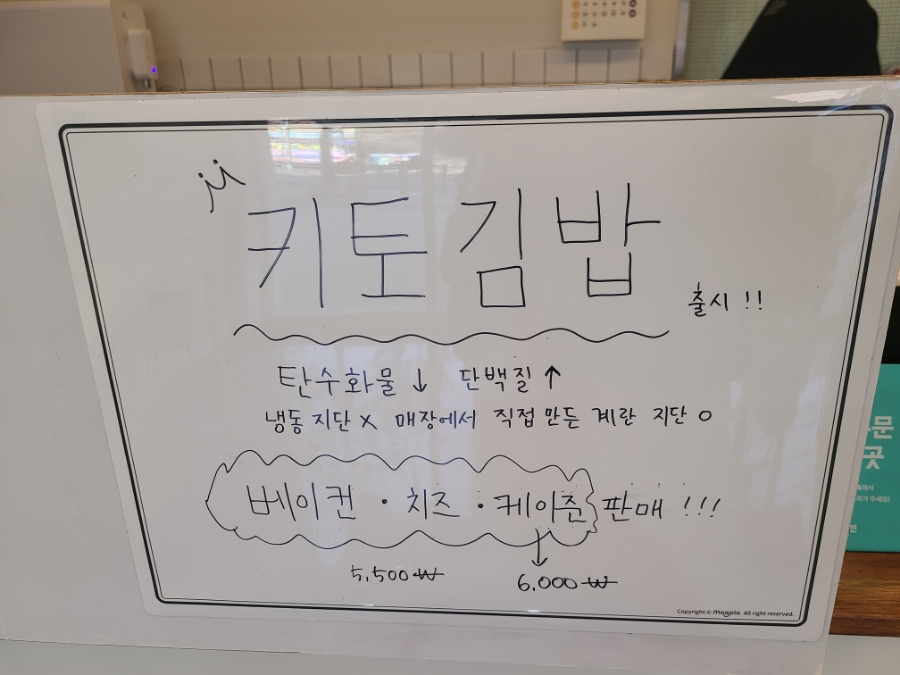 키토김밥
출시 !!
탄수화물 ↓ 단백질 ↑
냉동 지단 X 매장에서 직접 만든 계란 지단 O
베이컨 · 치즈 · 케이준 판매 !!!
5,500₩ 6,000₩
Copyright © magpie All right reserved.
문
곳